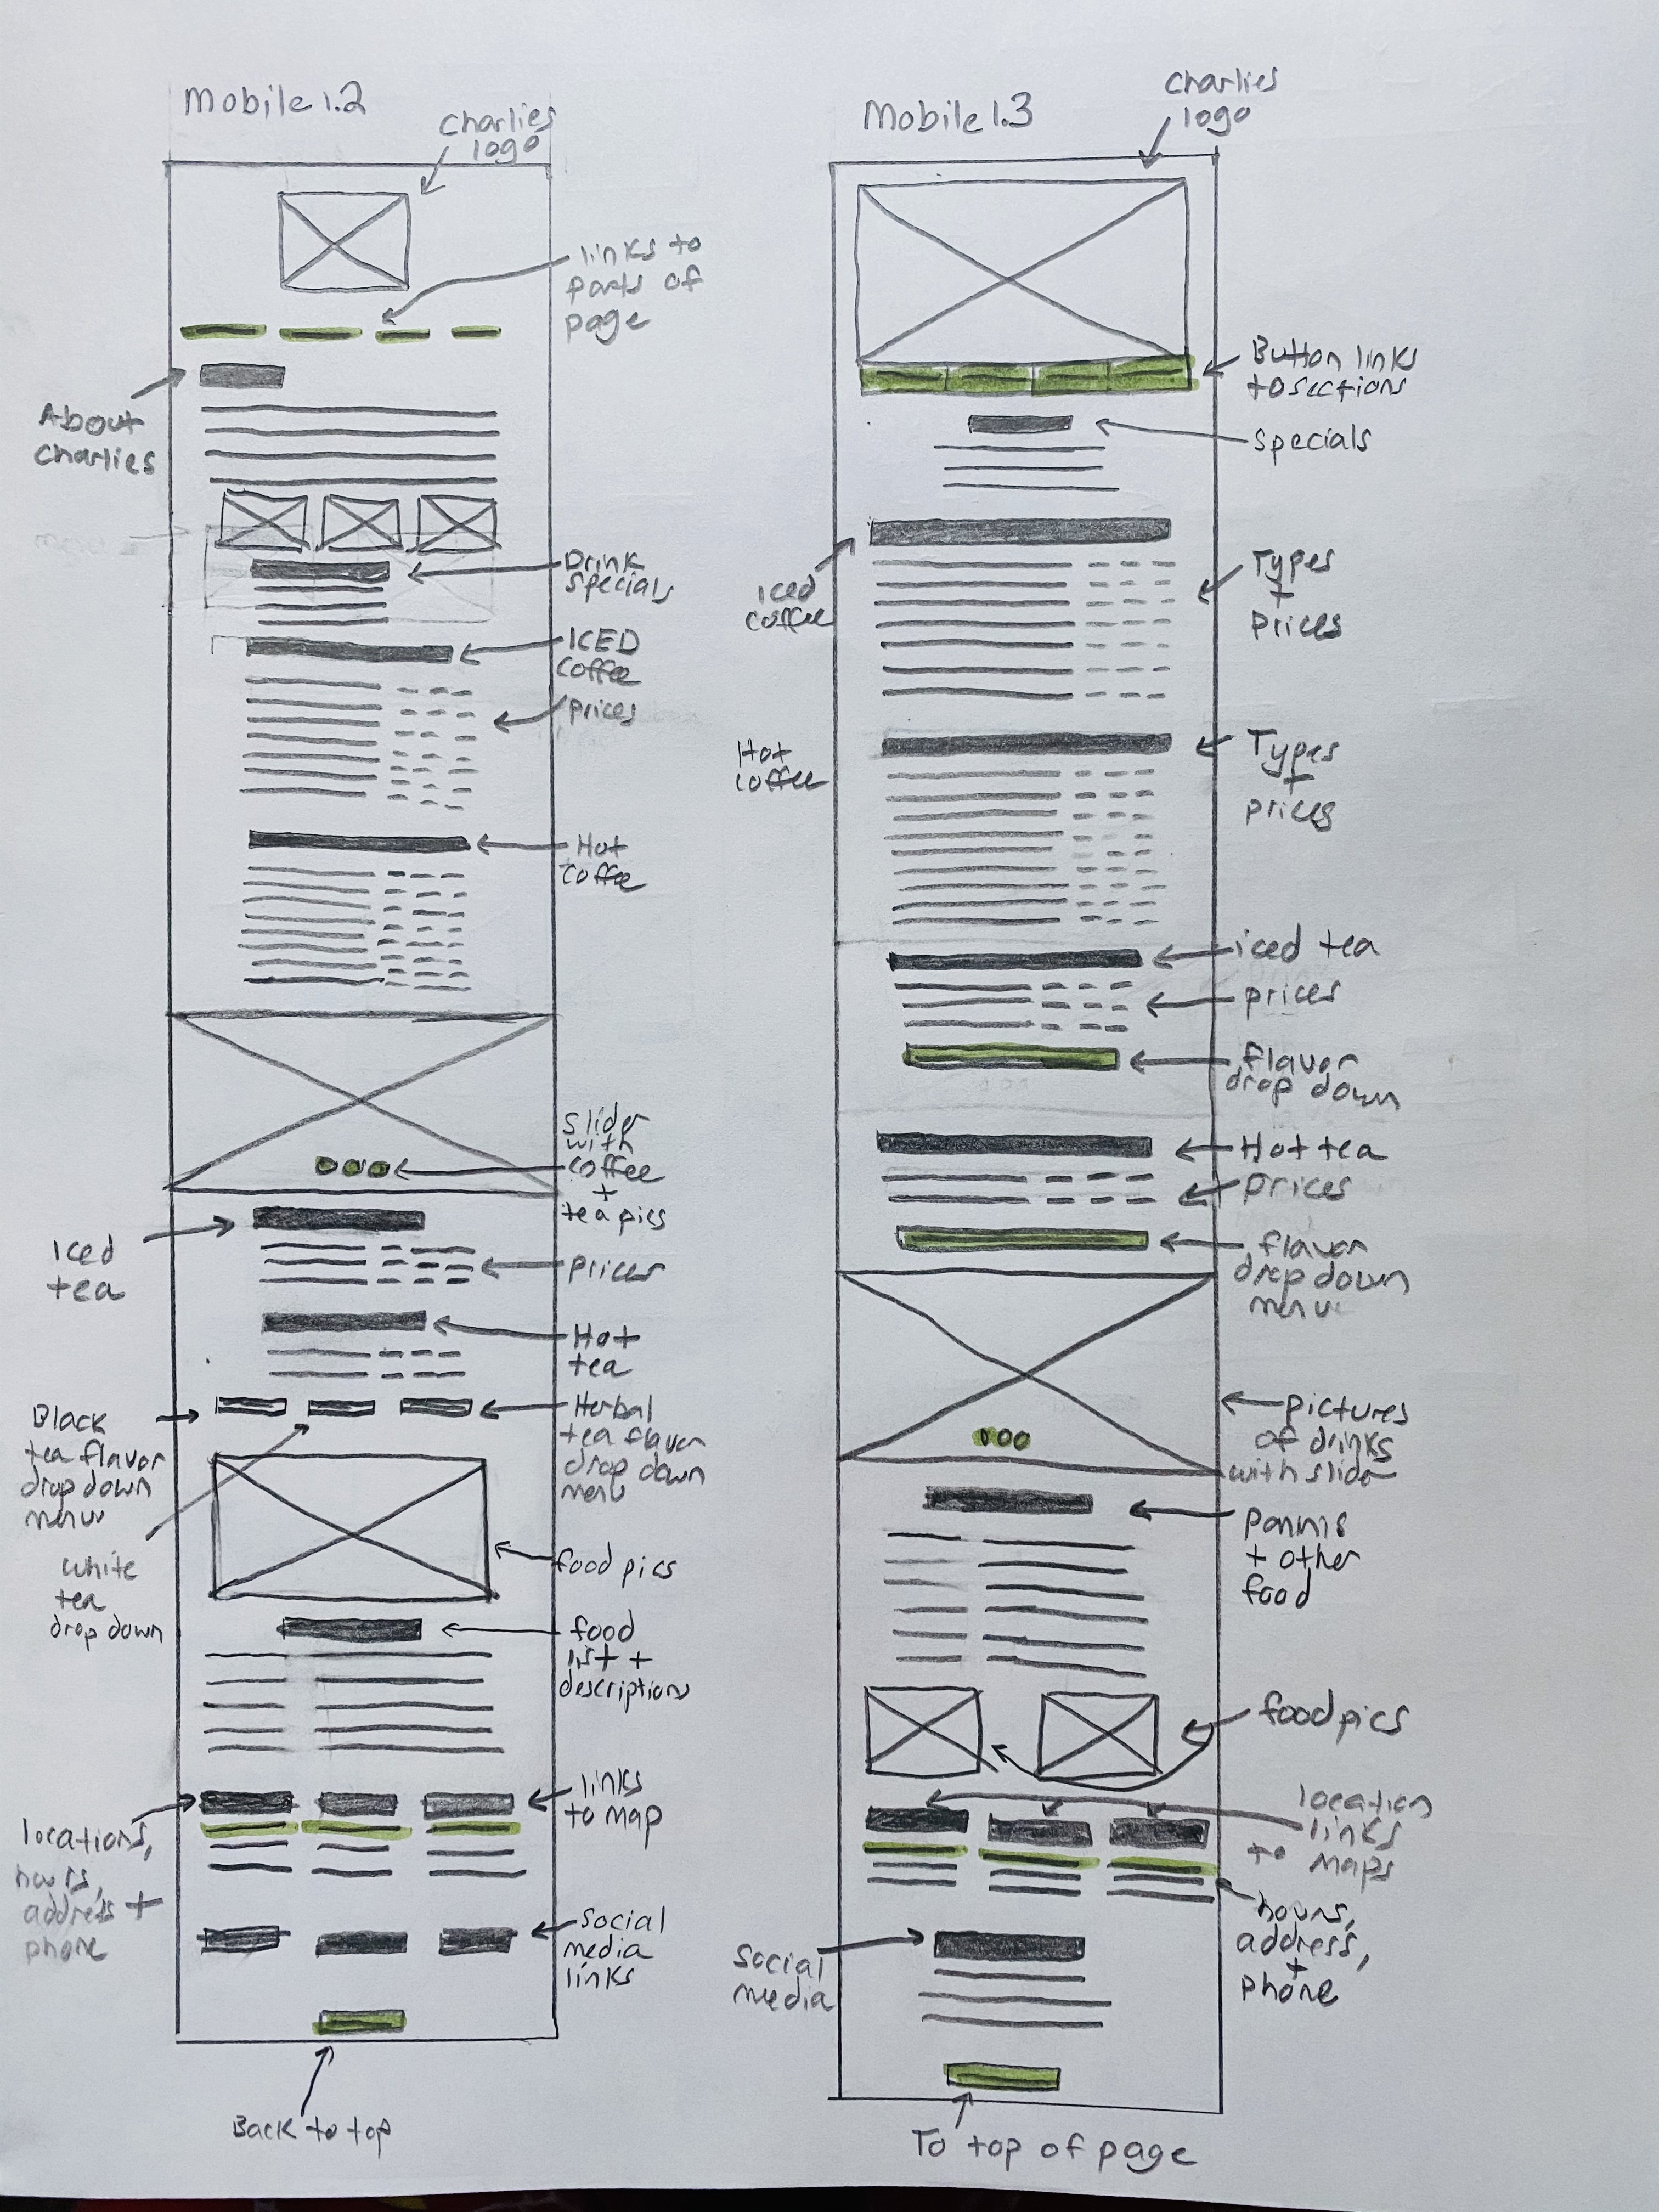 Mobile 1.2
Charlies
logo
links to
parts of
page
About
Charlies
Drink
specials
ICED
coffee
prices
Hot
coffee
Slider
with
coffee
+
tea pics
Iced
tea
prices
Hot
tea
Black
tea flavor
drop down
menu
Herbal
tea flavor
drop down
menu
white
tea
drop down
food pics
food
list +
descriptions
links
to map
locations,
hours,
address +
phone
Social
media
links
Back to top
Mobile 1.3
Charlies
logo
Button links
to sections
specials
Iced
coffee
Types
+
Prices
Hot
coffee
Types
+
prices
iced tea
prices
flavor
drop down
Hot tea
prices
flavor
drop down
menu
pictures
of drinks
with slider
pannis
+ other
food
food pics
location
links
to maps
hours,
address,
+
phone
Social
media
To top of page